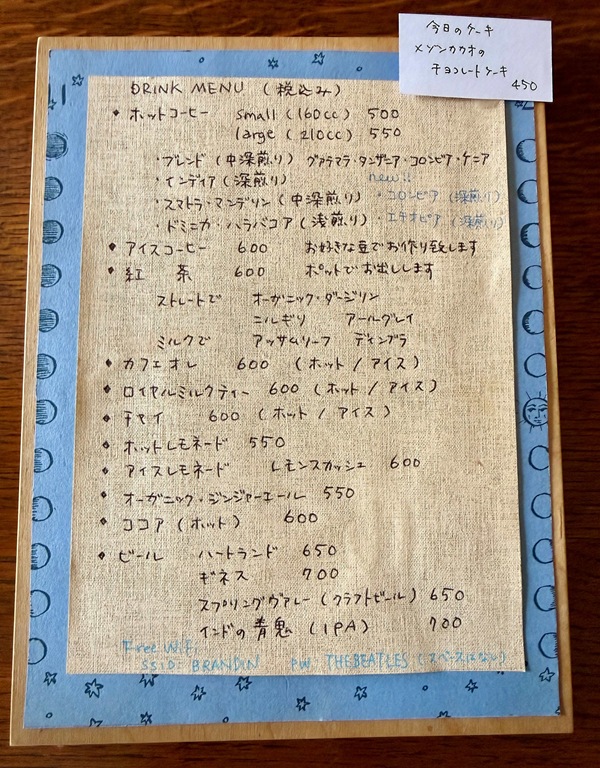 今日のケーキ
メゾンカカオの
チョコレートケーキ
450
DRINK MENU (税込み)
◆ ホットコーヒー small (160cc) 500
large (210cc) 550
・ブレンド (中深煎り) グァテマラ・タンザニア・コロンビア・ケニア
・インディア (深煎り) new!!
・スマトラ・マンデリン (中深煎り) ・コロンビア (深煎り)
・ドミニカ・ハラバコア (浅煎り) ・エチオピア (深煎り)
◆ アイスコーヒー 600 お好きな豆でお作り致します
◆ 紅 茶 600 ポットでお出しします
ストレートで オーガニック・ダージリン
ニルギリ アールグレイ
ミルクで アッサムリーフ ディンブラ
◆ カフェオレ 600 (ホット / アイス)
◆ ロイヤルミルクティー 600 (ホット / アイス)
◆ チャイ 600 (ホット / アイス)
◆ ホットレモネード 550
◆ アイスレモネード レモンスカッシュ 600
◆ オーガニック・ジンジャーエール 550
◆ ココア (ホット) 600
◆ ビール ハートランド 650
ギネス 700
スプリングヴァレー (クラフトビール) 650
インドの青鬼 (IPA) 700
Free Wifi
SSID: BRANDIN PW. THEBEATLES (スペースはなし)